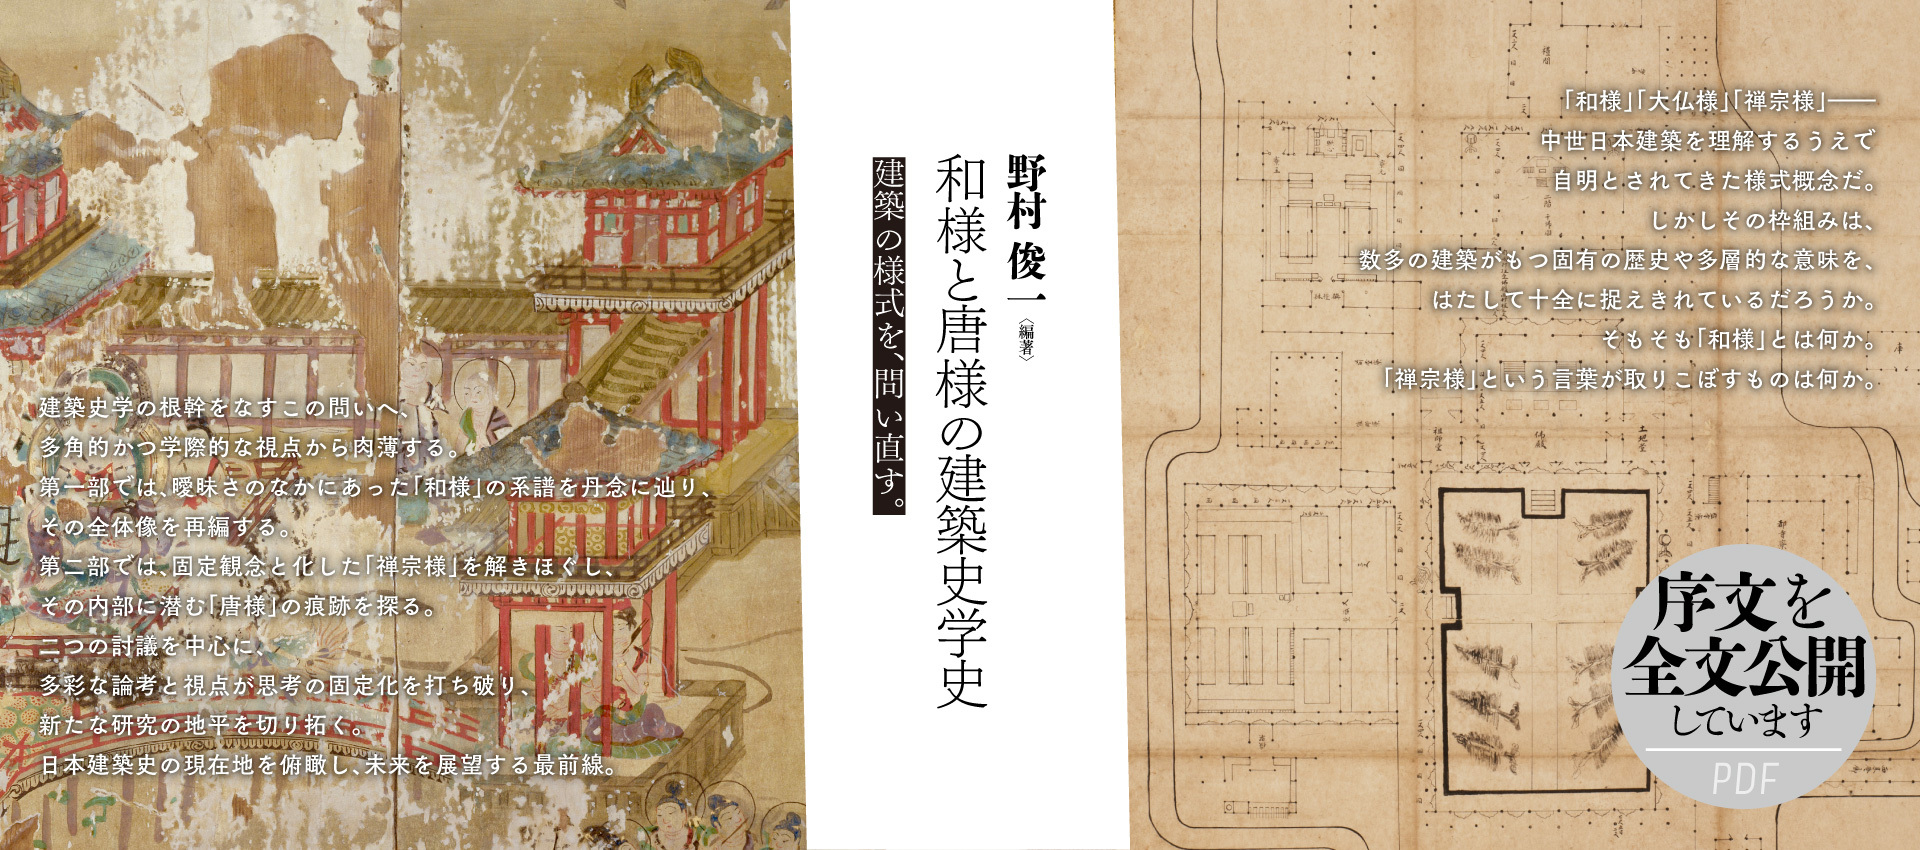 「和様」「大仏様」「禅宗様」――
中世日本建築を理解するうえで
自明とされてきた様式概念だ。
しかしその枠組みは、
数多の建築がもつ固有の歴史や多層的な意味を、
はたして十全に捉えきれているだろうか。
そもそも「和様」とは何か。
「禅宗様」という言葉が取りこぼすものは何か。
野村 俊一〈編著〉
和様と唐様の建築史学史
建築の様式を、問い直す。
建築史学の根幹をなすこの問いへ、
多角的かつ学際的な視点から肉薄する。
第一部では、曖昧さのなかにあった「和様」の系譜を丹念に辿り、
その全体像を再編する。
第二部では、固定観念と化した「禅宗様」を解きほぐし、
その内部に潜む「唐様」の痕跡を探る。
二つの討議を中心に、
多彩な論考と視点が思考の固定化を打ち破り、
新たな研究の地平を切り拓く。
日本建築史の現在地を俯瞰し、未来を展望する最前線。
序文を
全文公開
しています
PDF
祖師堂
佛殿
土地堂